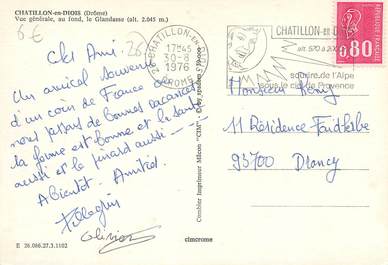 CHATILLON-en-DIOIS (Drôme)
Vue générale, au fond, le Glandasse (alt. 2.045 m.)
6€
26
Cher Ami.
Un amical souvenir
d'un coin de France où
nous passons de bonnes vacances
la forme est bonne et la santé
aussi et le pinard aussi
A bientôt. Amitiés
Pellegrin
Olivier
E 26.086.27.3.1102
cimcrome
Combier Imprimeur Mâcon "CIM"
CHATILLON-EN-
17H45
30-8
1976
DROME
CHATILLON-en-D
alt. 570 à 20
sourire de l'Alpe
sous le ciel de Provence
0,80
Monsieur Konig
11 Résidence Faidherbe
93700 Drancy